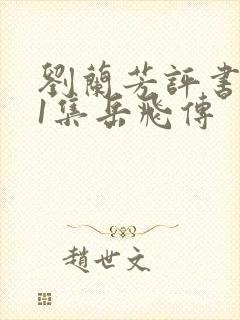 劉蘭芳評書
1集岳飛傳
趙世文